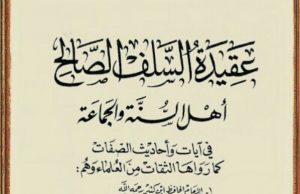 عَقِيدَةُ السَّلَفِ الصَّالِحِ
أَهْلِ السُّنَّةِ وَالجَمَاعَة
في آيات وأحاديث الصفات
كما رواها الثقات من العلماء وهم:
الإمام الحافظ ابن كثير رحمه الله